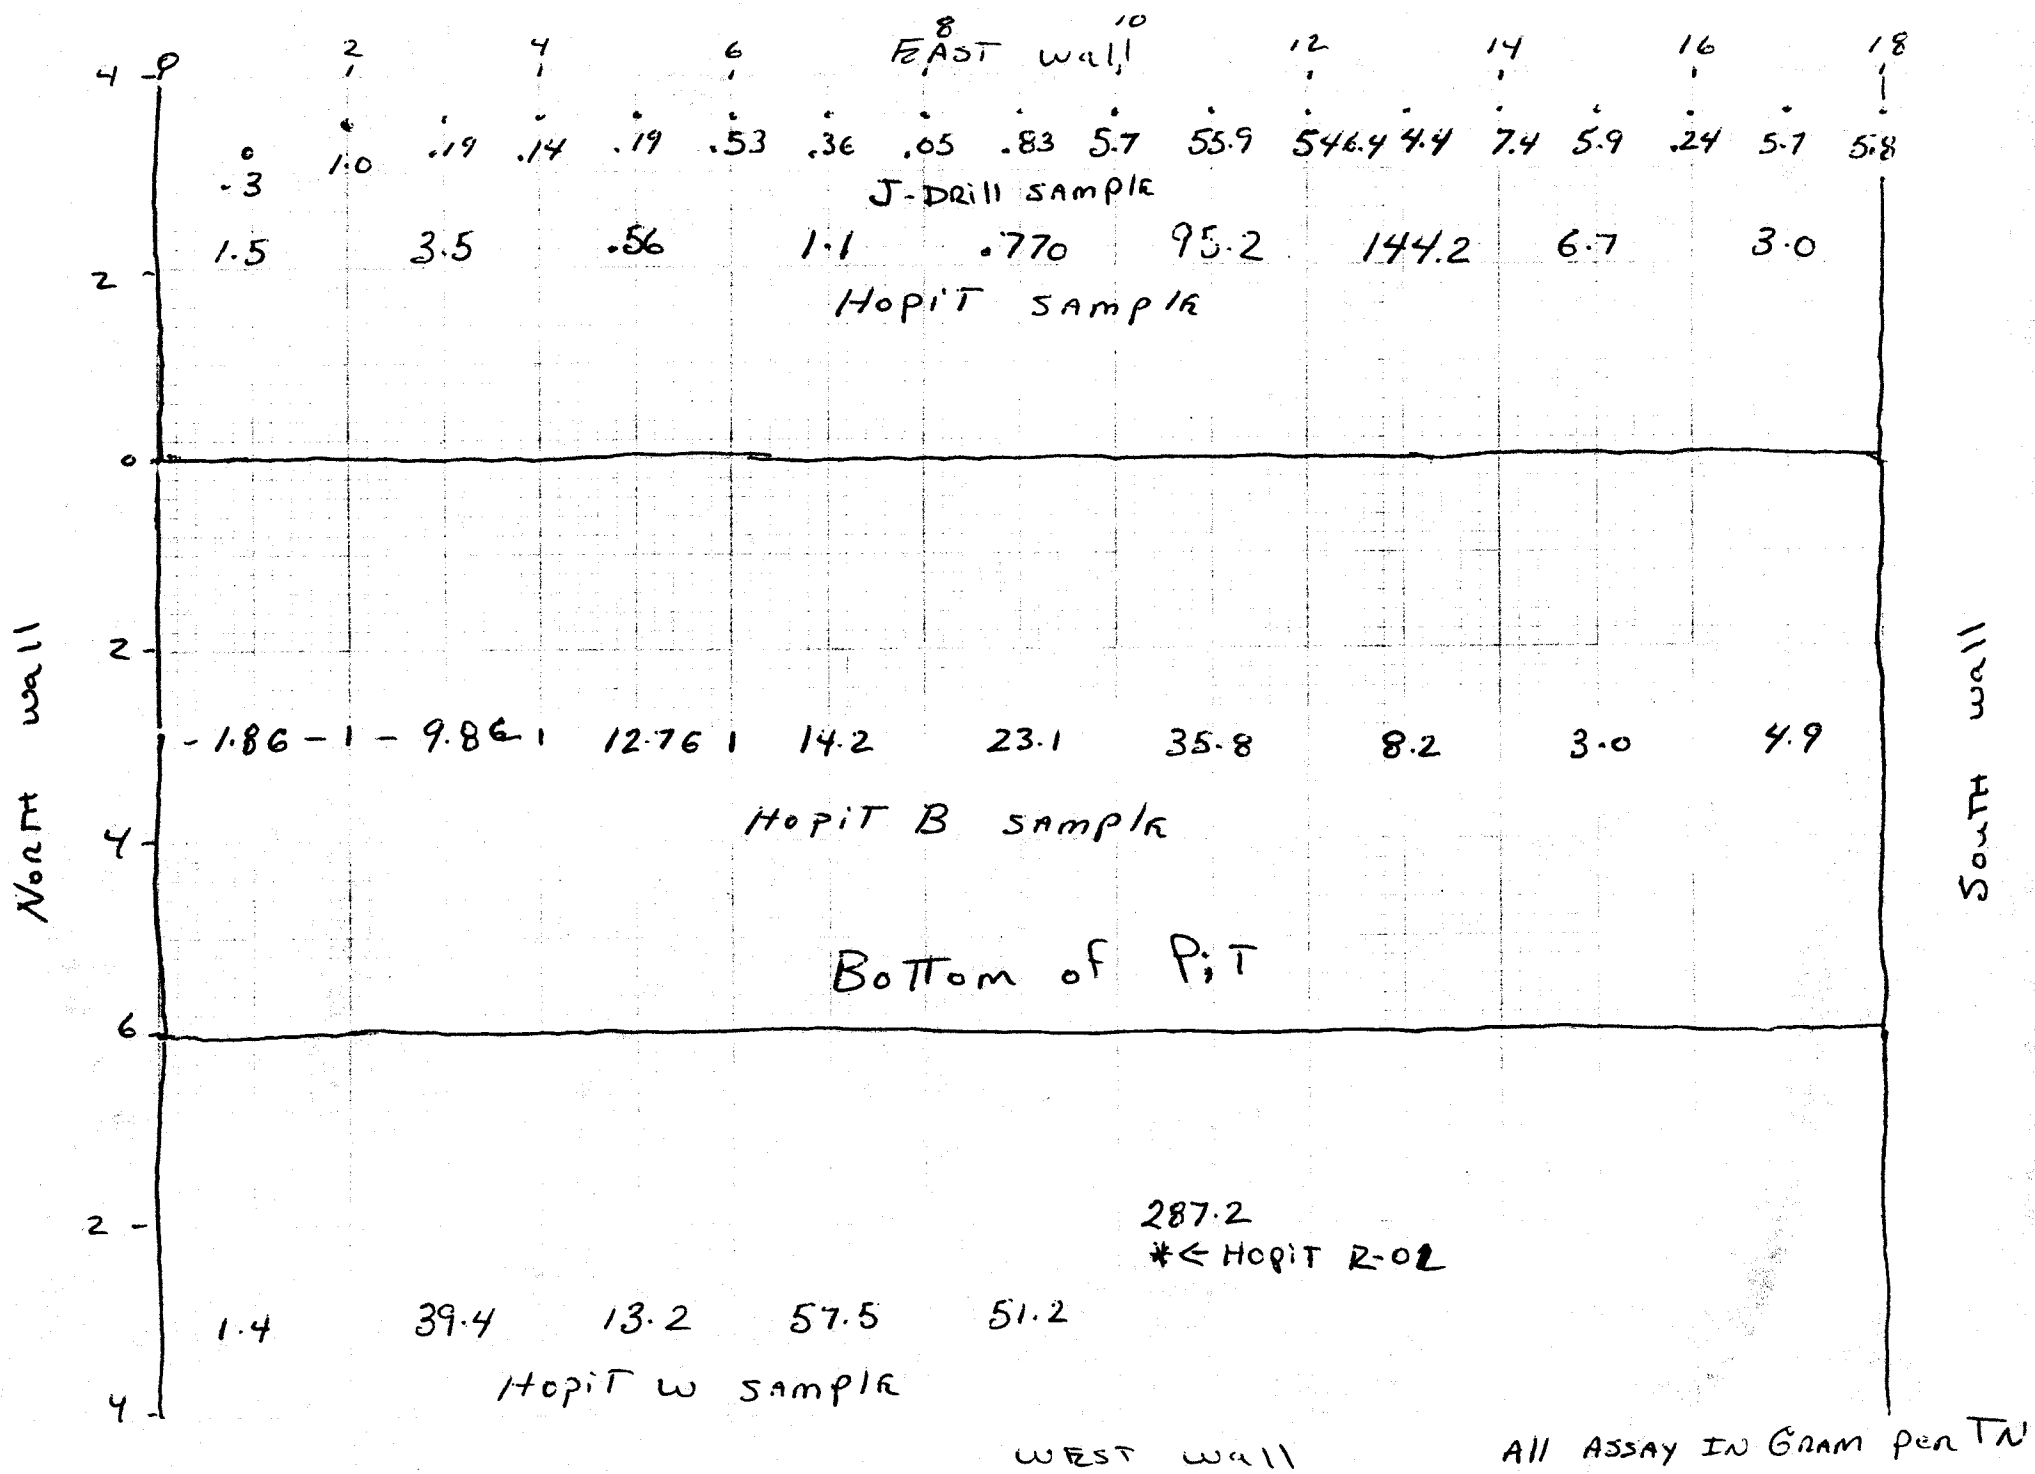 0 2 4 6 8 10 12 14 16 18
EAST wall
4
.3 1.0 .19 .14 .19 .53 .36 .05 .83 5.7 55.9 546.4 4.4 7.4 5.9 .24 5.7 5.8
J-DRill SAmple
1.5 3.5 .56 1.1 .770 95.2 144.2 6.7 3.0
2
HopiT SAmple
0
2
North wall
South wall
- 1.86 - 1 - 9.86 1 12.76 1 14.2 23.1 35.8 8.2 3.0 4.9
HopiT B SAmple
4
BoTTom of PiT
6
287.2
2
*← HopiT R-01
1.4 39.4 13.2 57.5 51.2
HopiT W SAmple
4
WEST wall
All ASSAY IN GRAM per TN